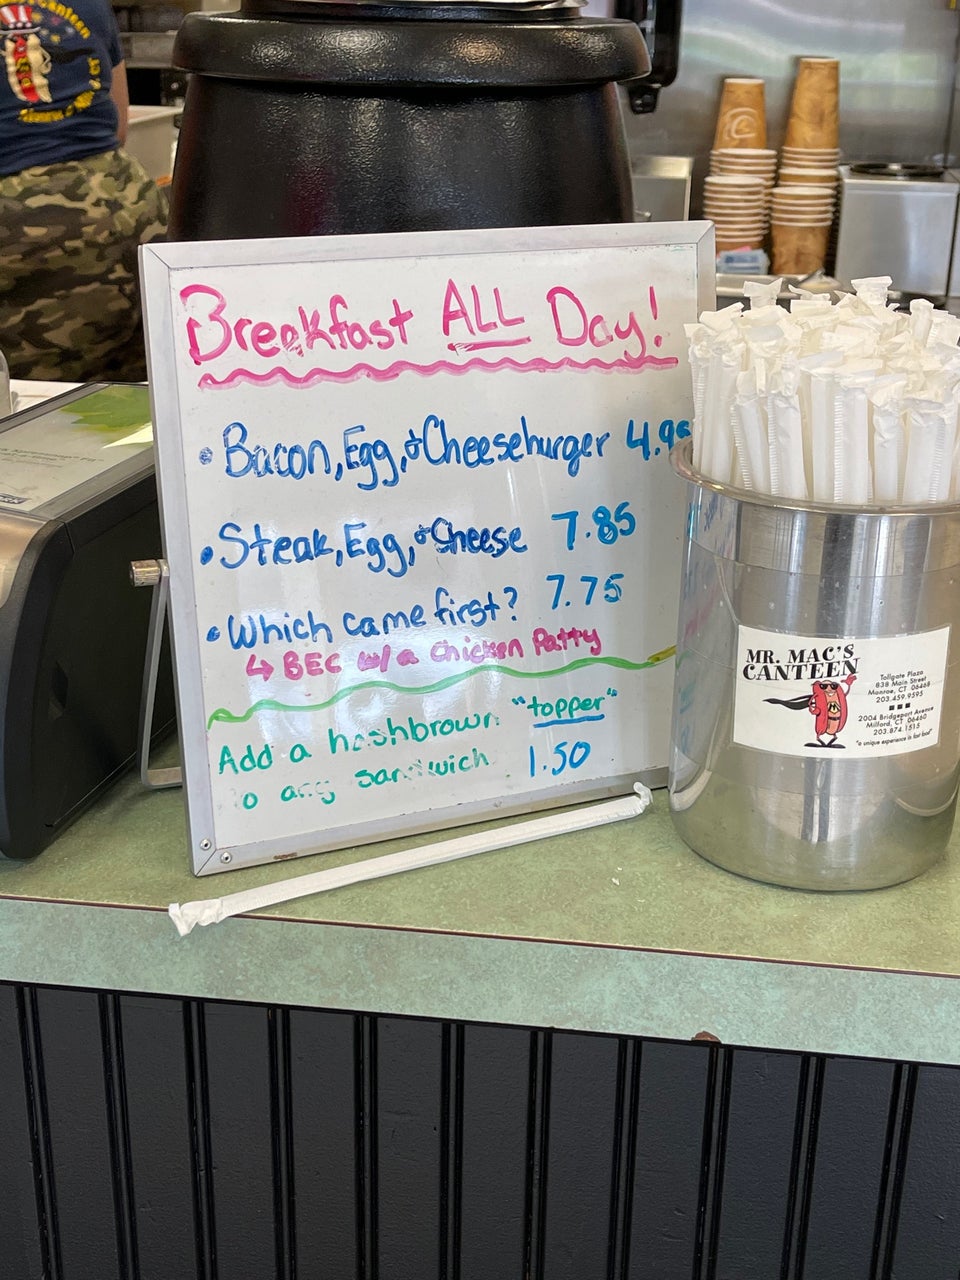 Breakfast ALL Day!
• Bacon, Egg, & Cheeseburger 4.99
• Steak, Egg, & Cheese 7.85
• Which came first? 7.75
↳ BEC w/a Chicken Patty
Add a hashbrown "topper"
to any sandwich 1.50
MR. MAC'S
CANTEEN
Tollgate Plaza
838 Main Street
Monroe, CT 06468
203.459.9595
2004 Bridgeport Avenue
Milford, CT 06460
203.874.1515
"a unique experience in fast food"